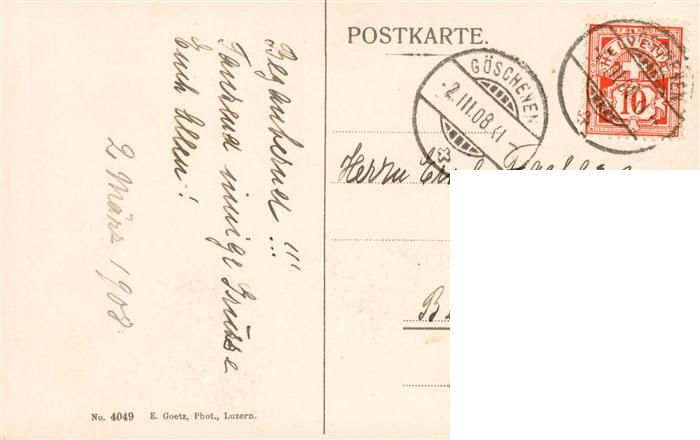 Bezaubernd !!!
Tausend innige Grüsse
Euch Allen!
2 März 1908
No. 4049 E. Goetz, Phot., Luzern.
POSTKARTE.
GÖSCHENEN
-2.III.08.
HELVETIA
10
GÖSCHENEN
Herrn